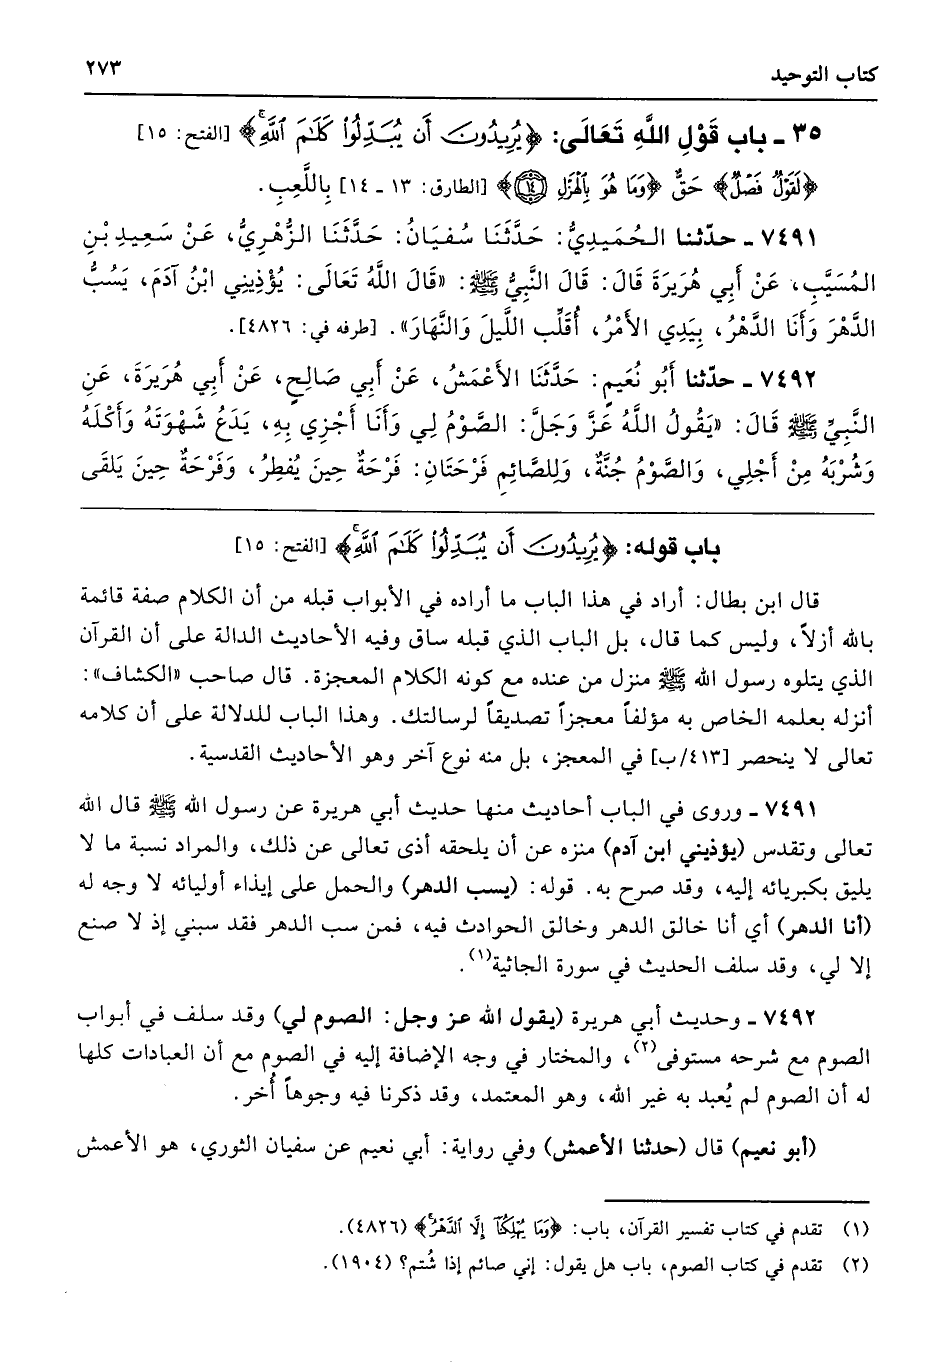 كتاب التوحيد ٢٧٣
٣٥ ـ باب قَوْلِ اللَّهِ تَعَالَى: ﴿يُرِيدُونَ أَن يُبَدِّلُواْ كَلَٰمَ ٱللَّهِۚ﴾ [الفتح: ١٥]
﴿لَقَوْلٌ فَصْلٌ﴾ حَقٌّ ﴿وَمَا هُوَ بِٱلْهَزْلِ ١٤﴾ [الطارق: ١٣ ـ ١٤] بِاللَّعِبِ.
٧٤٩١ ـ حدّثنا الحُمَيدِيُّ: حَدَّثَنَا سُفيَانُ: حَدَّثَنَا الزُّهْرِيُّ، عَنْ سَعِيدِ بْنِ
المُسَيَّبِ، عَنْ أَبِي هُرَيرَةَ قَالَ: قَالَ النَّبِيُّ ﷺ: «قَالَ اللَّهُ تَعَالَى: يُؤْذِينِي ابْنُ آدَمَ، يَسُبُّ
الدَّهْرَ وَأَنَا الدَّهْرُ، بِيَدِي الأَمْرُ، أُقَلِّب اللَّيلَ وَالنَّهَارَ». [طرفه في: ٤٨٢٦].
٧٤٩٢ ـ حدّثنا أَبُو نُعَيمٍ: حَدَّثَنَا الأَعْمَشُ، عَنْ أَبِي صَالِحٍ، عَنْ أَبِي هُرَيرَةَ، عَنِ
النَّبِيِّ ﷺ قَالَ: «يَقُولُ اللَّهُ عَزَّ وَجَلَّ: الصَّوْمُ لِي وَأَنَا أَجْزِي بِهِ، يَدَعُ شَهْوَتَهُ وَأَكْلَهُ
وَشُرْبَهُ مِنْ أَجْلِي، وَالصَّوْمُ جُنَّةٌ، وَلِلصَّائِمِ فَرْحَتَانِ: فَرْحَةٌ حِينَ يُفطِرُ، وَفَرْحَةٌ حِينَ يَلقَى
باب قوله: ﴿يُرِيدُونَ أَن يُبَدِّلُواْ كَلَٰمَ ٱللَّهِۚ﴾ [الفتح: ١٥]
قال ابن بطال: أراد في هذا الباب ما أراده في الأبواب قبله من أن الكلام صفة قائمة
بالله أزلاً، وليس كما قال، بل الباب الذي قبله ساق وفيه الأحاديث الدالة على أن القرآن
الذي يتلوه رسول الله ﷺ منزل من عنده مع كونه الكلام المعجزة. قال صاحب «الكشاف»:
أنزله بعلمه الخاص به مؤلفاً معجزاً تصديقاً لرسالتك. وهذا الباب للدلالة على أن كلامه
تعالى لا ينحصر [٤١٣/ب] في المعجز، بل منه نوع آخر وهو الأحاديث القدسية.
٧٤٩١ ـ وروى في الباب أحاديث منها حديث أبي هريرة عن رسول الله ﷺ قال الله
تعالى وتقدس (يؤذيني ابن آدم) منزه عن أن يلحقه أذى تعالى عن ذلك، والمراد نسبة ما لا
يليق بكبريائه إليه، وقد صرح به. قوله: (يسب الدهر) والحمل على إيذاء أوليائه لا وجه له
(أنا الدهر) أي أنا خالق الدهر وخالق الحوادث فيه، فمن سب الدهر فقد سبني إذ لا صنع
إلا لي، وقد سلف الحديث في سورة الجاثية(١).
٧٤٩٢ ـ وحديث أبي هريرة (يقول الله عز وجل: الصوم لي) وقد سلف في أبواب
الصوم مع شرحه مستوفى(٢)، والمختار في وجه الإضافة إليه في الصوم مع أن العبادات كلها
له أن الصوم لم يُعبد به غير الله، وهو المعتمد، وقد ذكرنا فيه وجوهاً أُخر.
(أبو نعيم) قال (حدثنا الأعمش) وفي رواية: أبي نعيم عن سفيان الثوري، هو الأعمش
(١) تقدم في كتاب تفسير القرآن، باب: ﴿وَمَا يُهْلِكُنَآ إِلَّا ٱلدَّهْرُۚ﴾ (٤٨٢٦).
(٢) تقدم في كتاب الصوم، باب هل يقول: إني صائم إذا شُتم؟ (١٩٠٤).